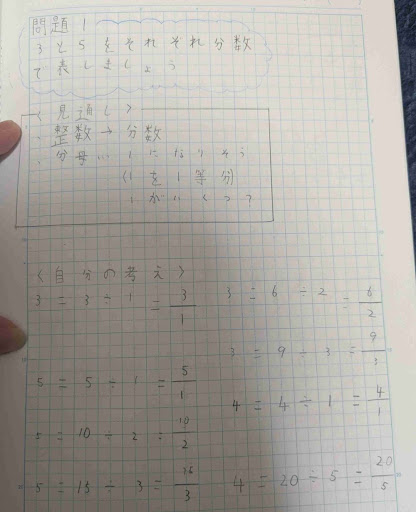 問題1
3と5をそれぞれ分数
で表しましょう
〈見通し〉
・整数→分数
・分母…1になりそう
〈1を1等分
1がいくつ〉
〈自分の考え〉
3=3÷1=3/1
5=5÷1=5/1
5=10÷2=10/2
5=15÷3=15/3
3=6÷2=6/2
3=9÷3=9/3
4=4÷1=4/1
4=20÷5=20/5